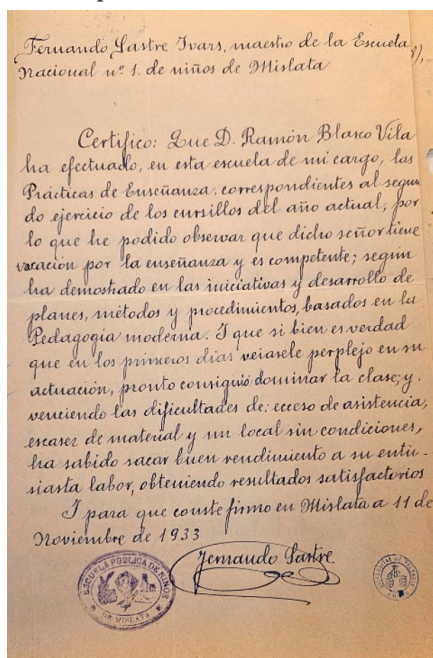 Fernando Sastre Ivars, maestro de la Escuela
Nacional nº 1. de niños de Mislata
Certifico: Que D. Ramón Blasco Vila
ha efectuado, en esta escuela de mi cargo, las
Prácticas de Enseñanza. correspondientes al segun
do ejercicio de los cursillos del año actual; por
lo que he podido observar que dicho señor tiene
vocación por la enseñanza y es competente; según
ha demostrado en las iniciativas y desarrollo de
planes, métodos y procedimientos, basados en la
Pedagogía moderna. Y que si bien es verdad
que en los primeros días veiasele perplejo en su
actuación, pronto consiguió dominar la clase; y.
venciendo las dificultades de; exceso de asistencia,
escasez de material y un local sin condiciones,
ha sabido sacar buen rendimiento a su entu-
siasta labor, obteniendo resultados satisfactorios
Y para que conste firmo en Mislata a 11 de
Noviembre de 1933
Fernando Sastre.
ESCUELA PÚBLICA DE NIÑOS
DE MISLATA